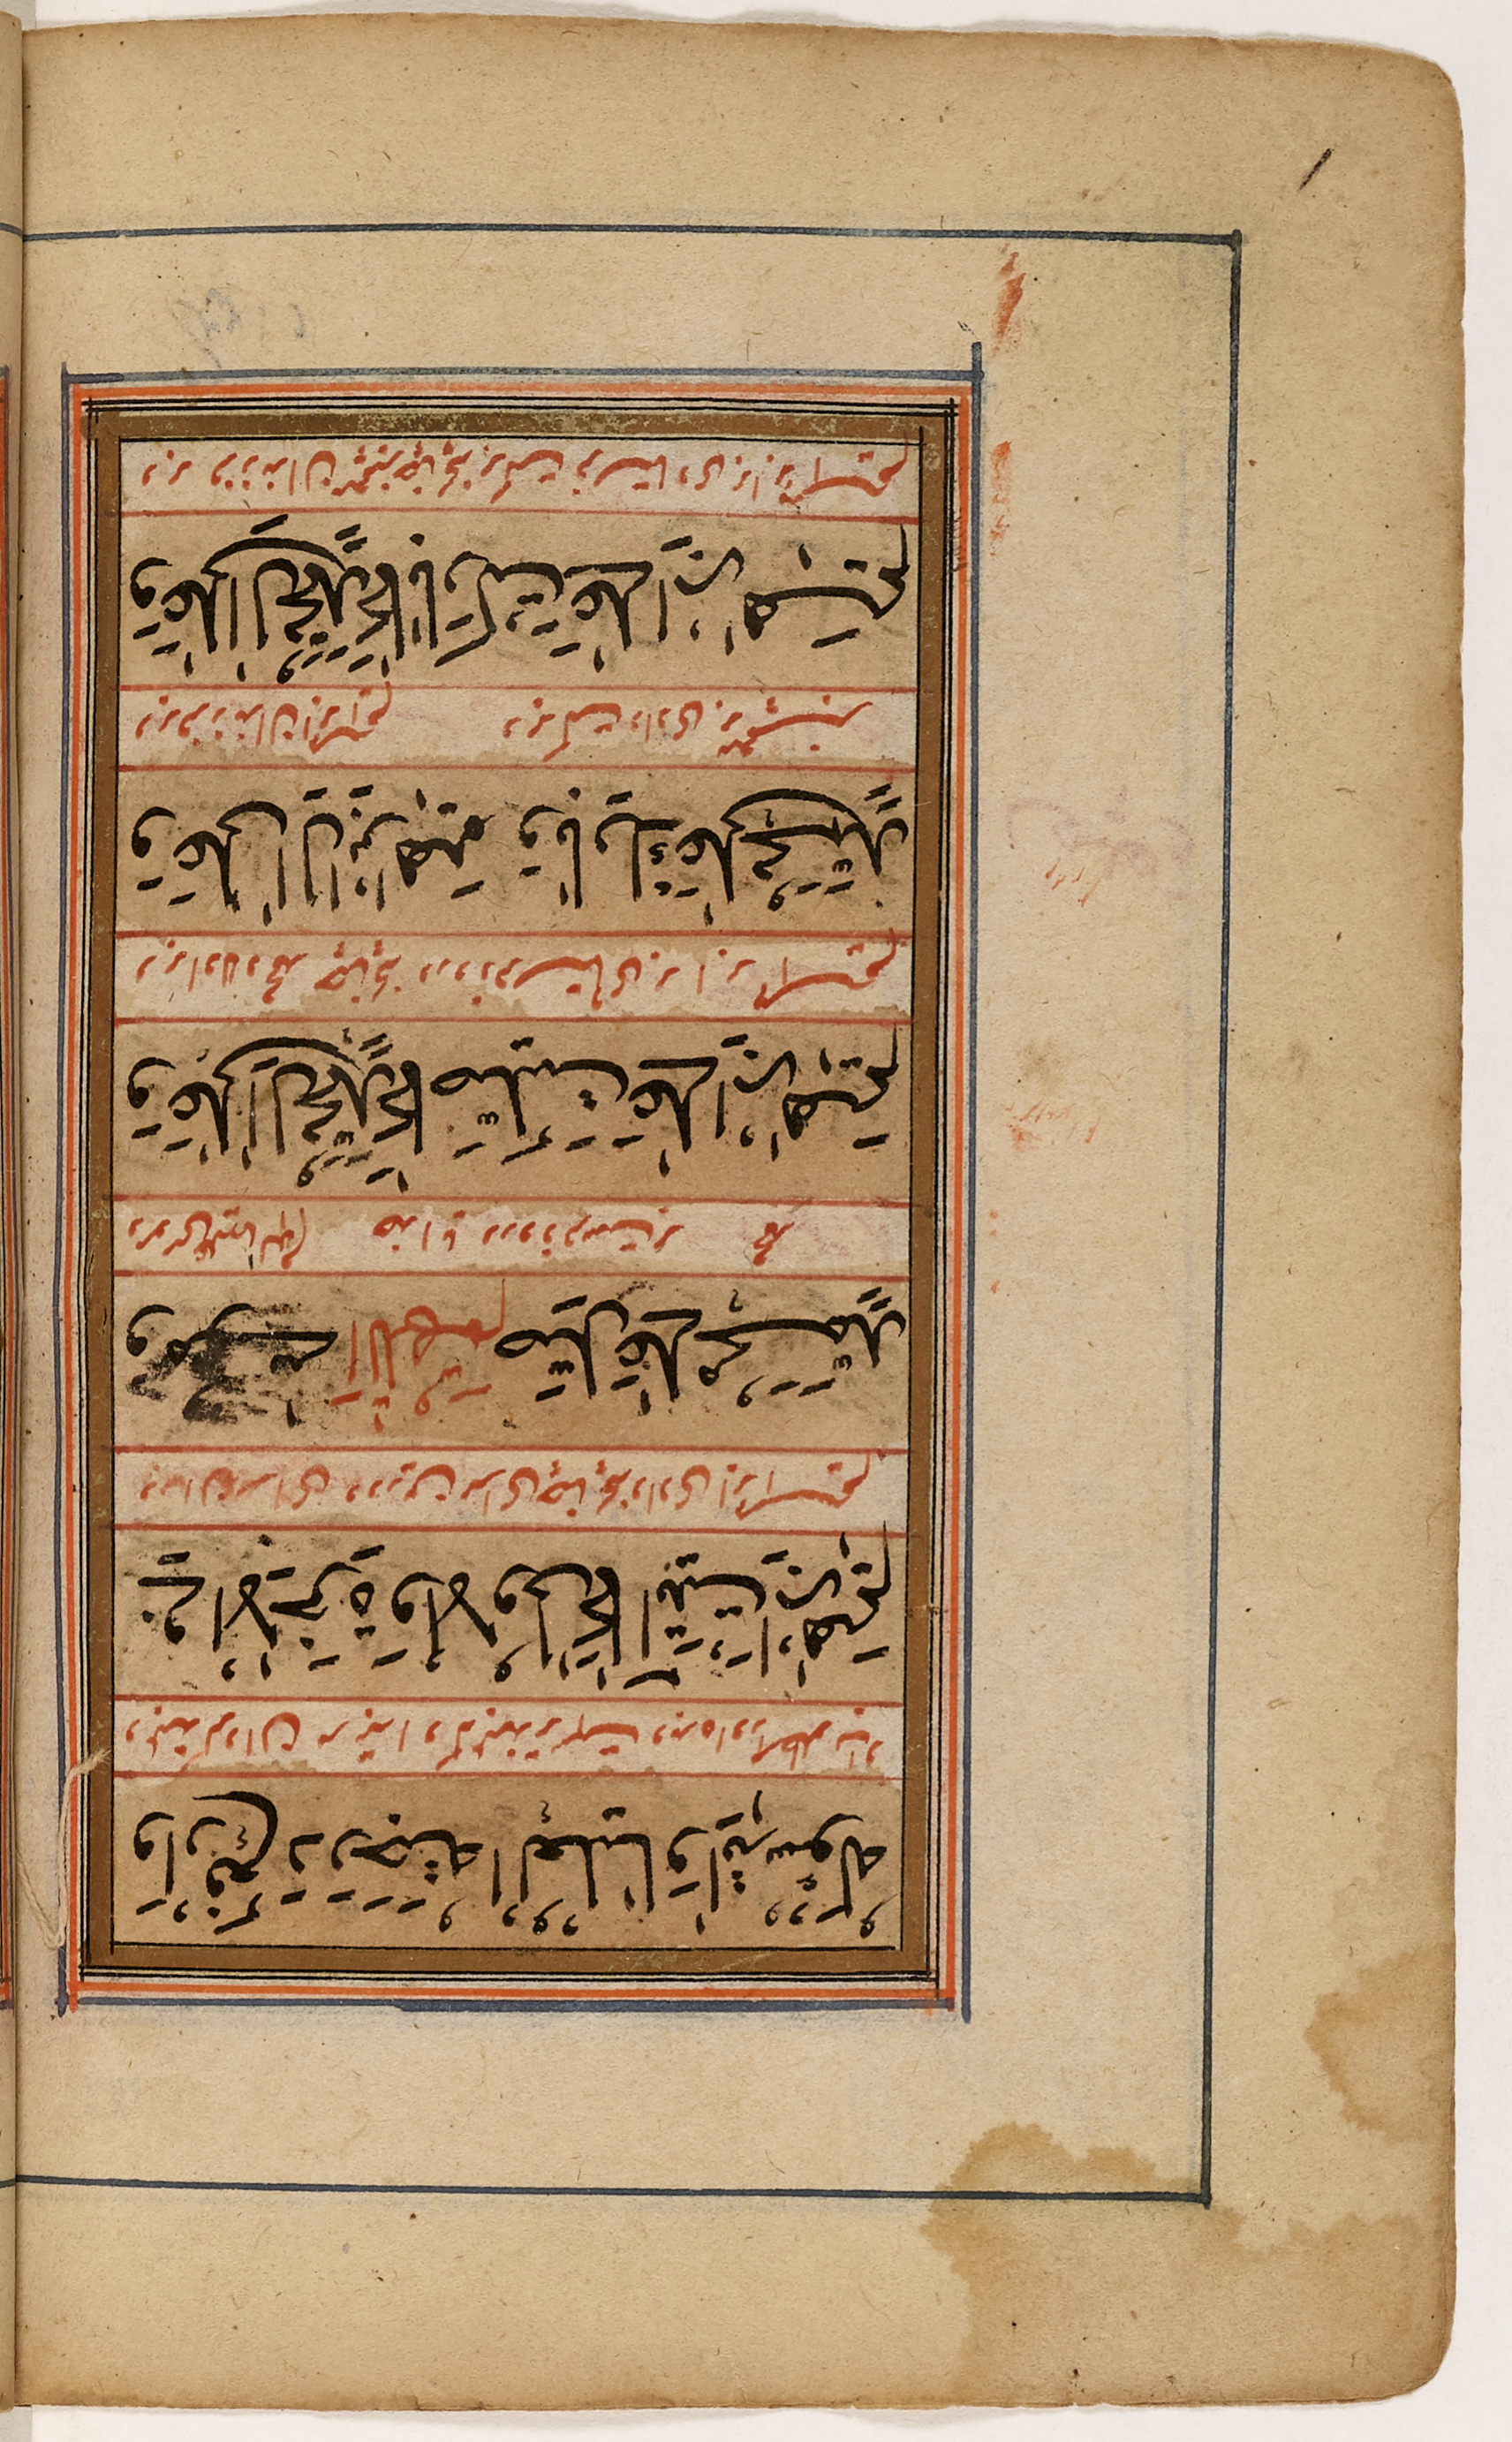 وَارْفَعْ دَرَجَتَهُ الْعُلْيَا وَاٰتِهِ سُؤْلَهُ
و بلند گردان مرتبه او را که بلندتر است و بده او را
فِي الْاٰخِرَةِ وَالْاُوْلٰى كَمَا اٰتَيْتَ اِبْرٰهِيْمَ
در ان سرای و درین سرای چنانچه دادی ابراهیم
وَمُوْسٰى اَللّٰهُمَّ صَلِّ عَلٰى مُحَمَّدٍ
و موسی علیهما السلام خدایا درود فرست بر محمد
وَعَلٰى اٰلِ مُحَمَّدٍ كَمَا صَلَّيْتَ عَلٰى اِبْرٰهِيْمَ
و بر اولاد محمد چنانچه درود فرستادی بر ابراهیم
وَعَلٰى اٰلِ اِبْرٰهِيْمَ وَبَارِكْ عَلٰى مُحَمَّدٍ
و بر فرزندان ابراهیم و برکت دادی بر پیغمبر
وَعَلٰى اٰلِ مُحَمَّدٍ كَمَا بَارَكْتَ عَلٰى اِبْرٰهِيْمَ
و بر فرزندان پیغمبر چنانچه برکت فرستادی بر ابراهیم